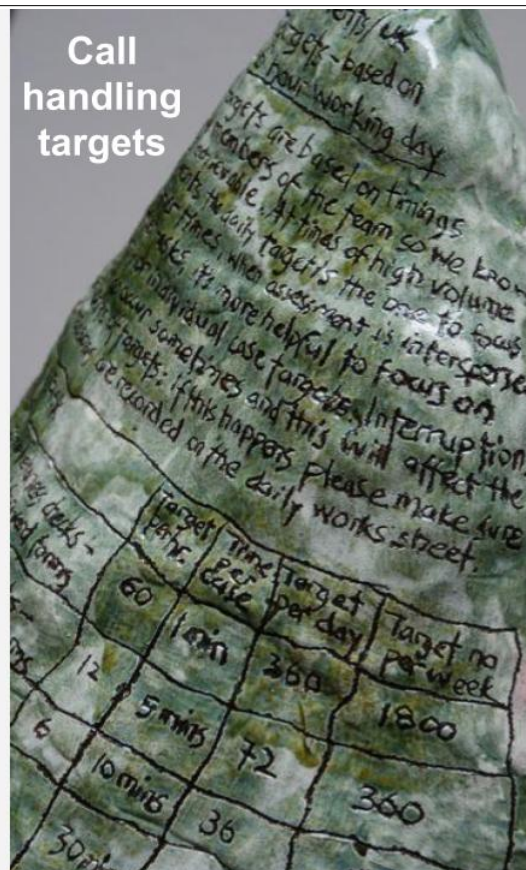 Call
handling
targets
uk
targets - based on
hour working day
targets are based on timings
members of the team so we know
At times of high volume
the daily target is the one to focus
times, when assessment is interspersed
tasks, it's more helpful to focus on
individual case targets. Interruption
occur sometimes and this will affect the
targets: if this happens please make sure
are recorded on the daily works sheet.
Target Time Target Target no
p/hr. per per day per week
case
checks -
timing 60 1 min 360 1800
12 5 mins 72 360
6 10 mins 36
30